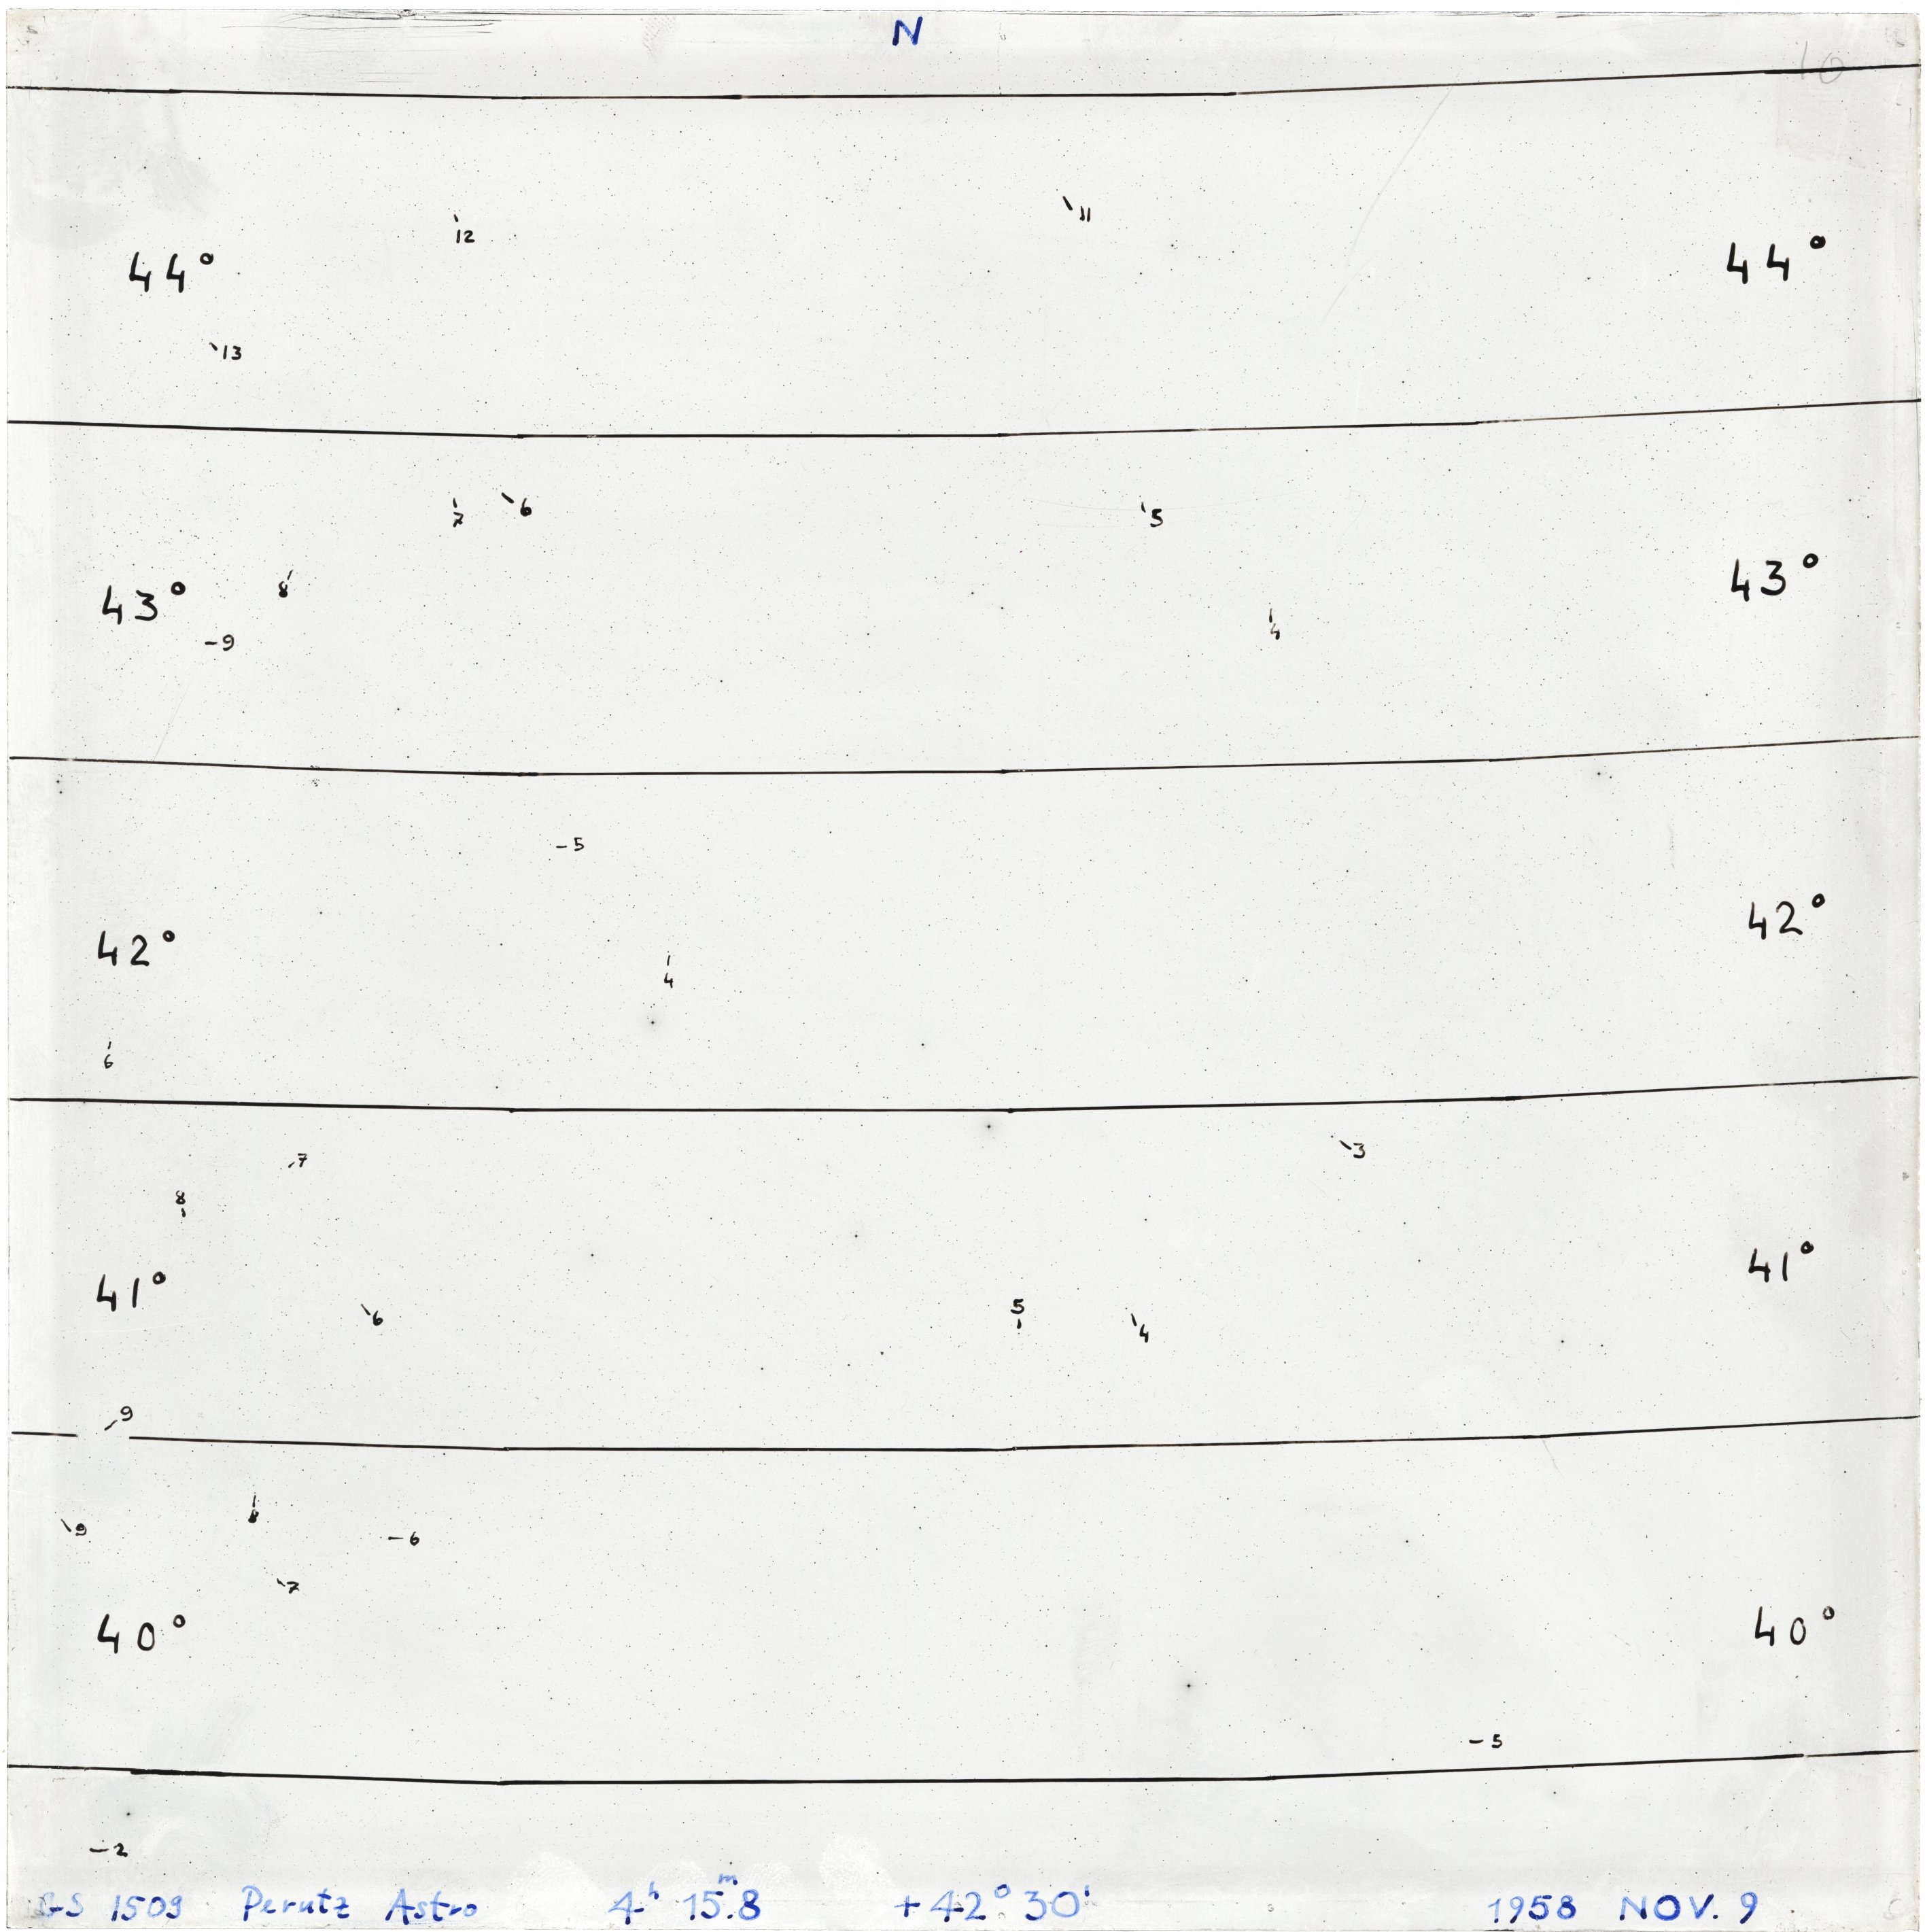 N
10
11
12
44° 44°
13
7 6 5
8
43° 43°
9
4
5
42° 42°
4
6
3
7
8
41° 41°
5
6 4
9
8
9 6
7
40° 40°
5
2
GS 1509 Perutz Astro 4ʰ 15ᵐ.8 +42° 30' 1958 NOV. 9